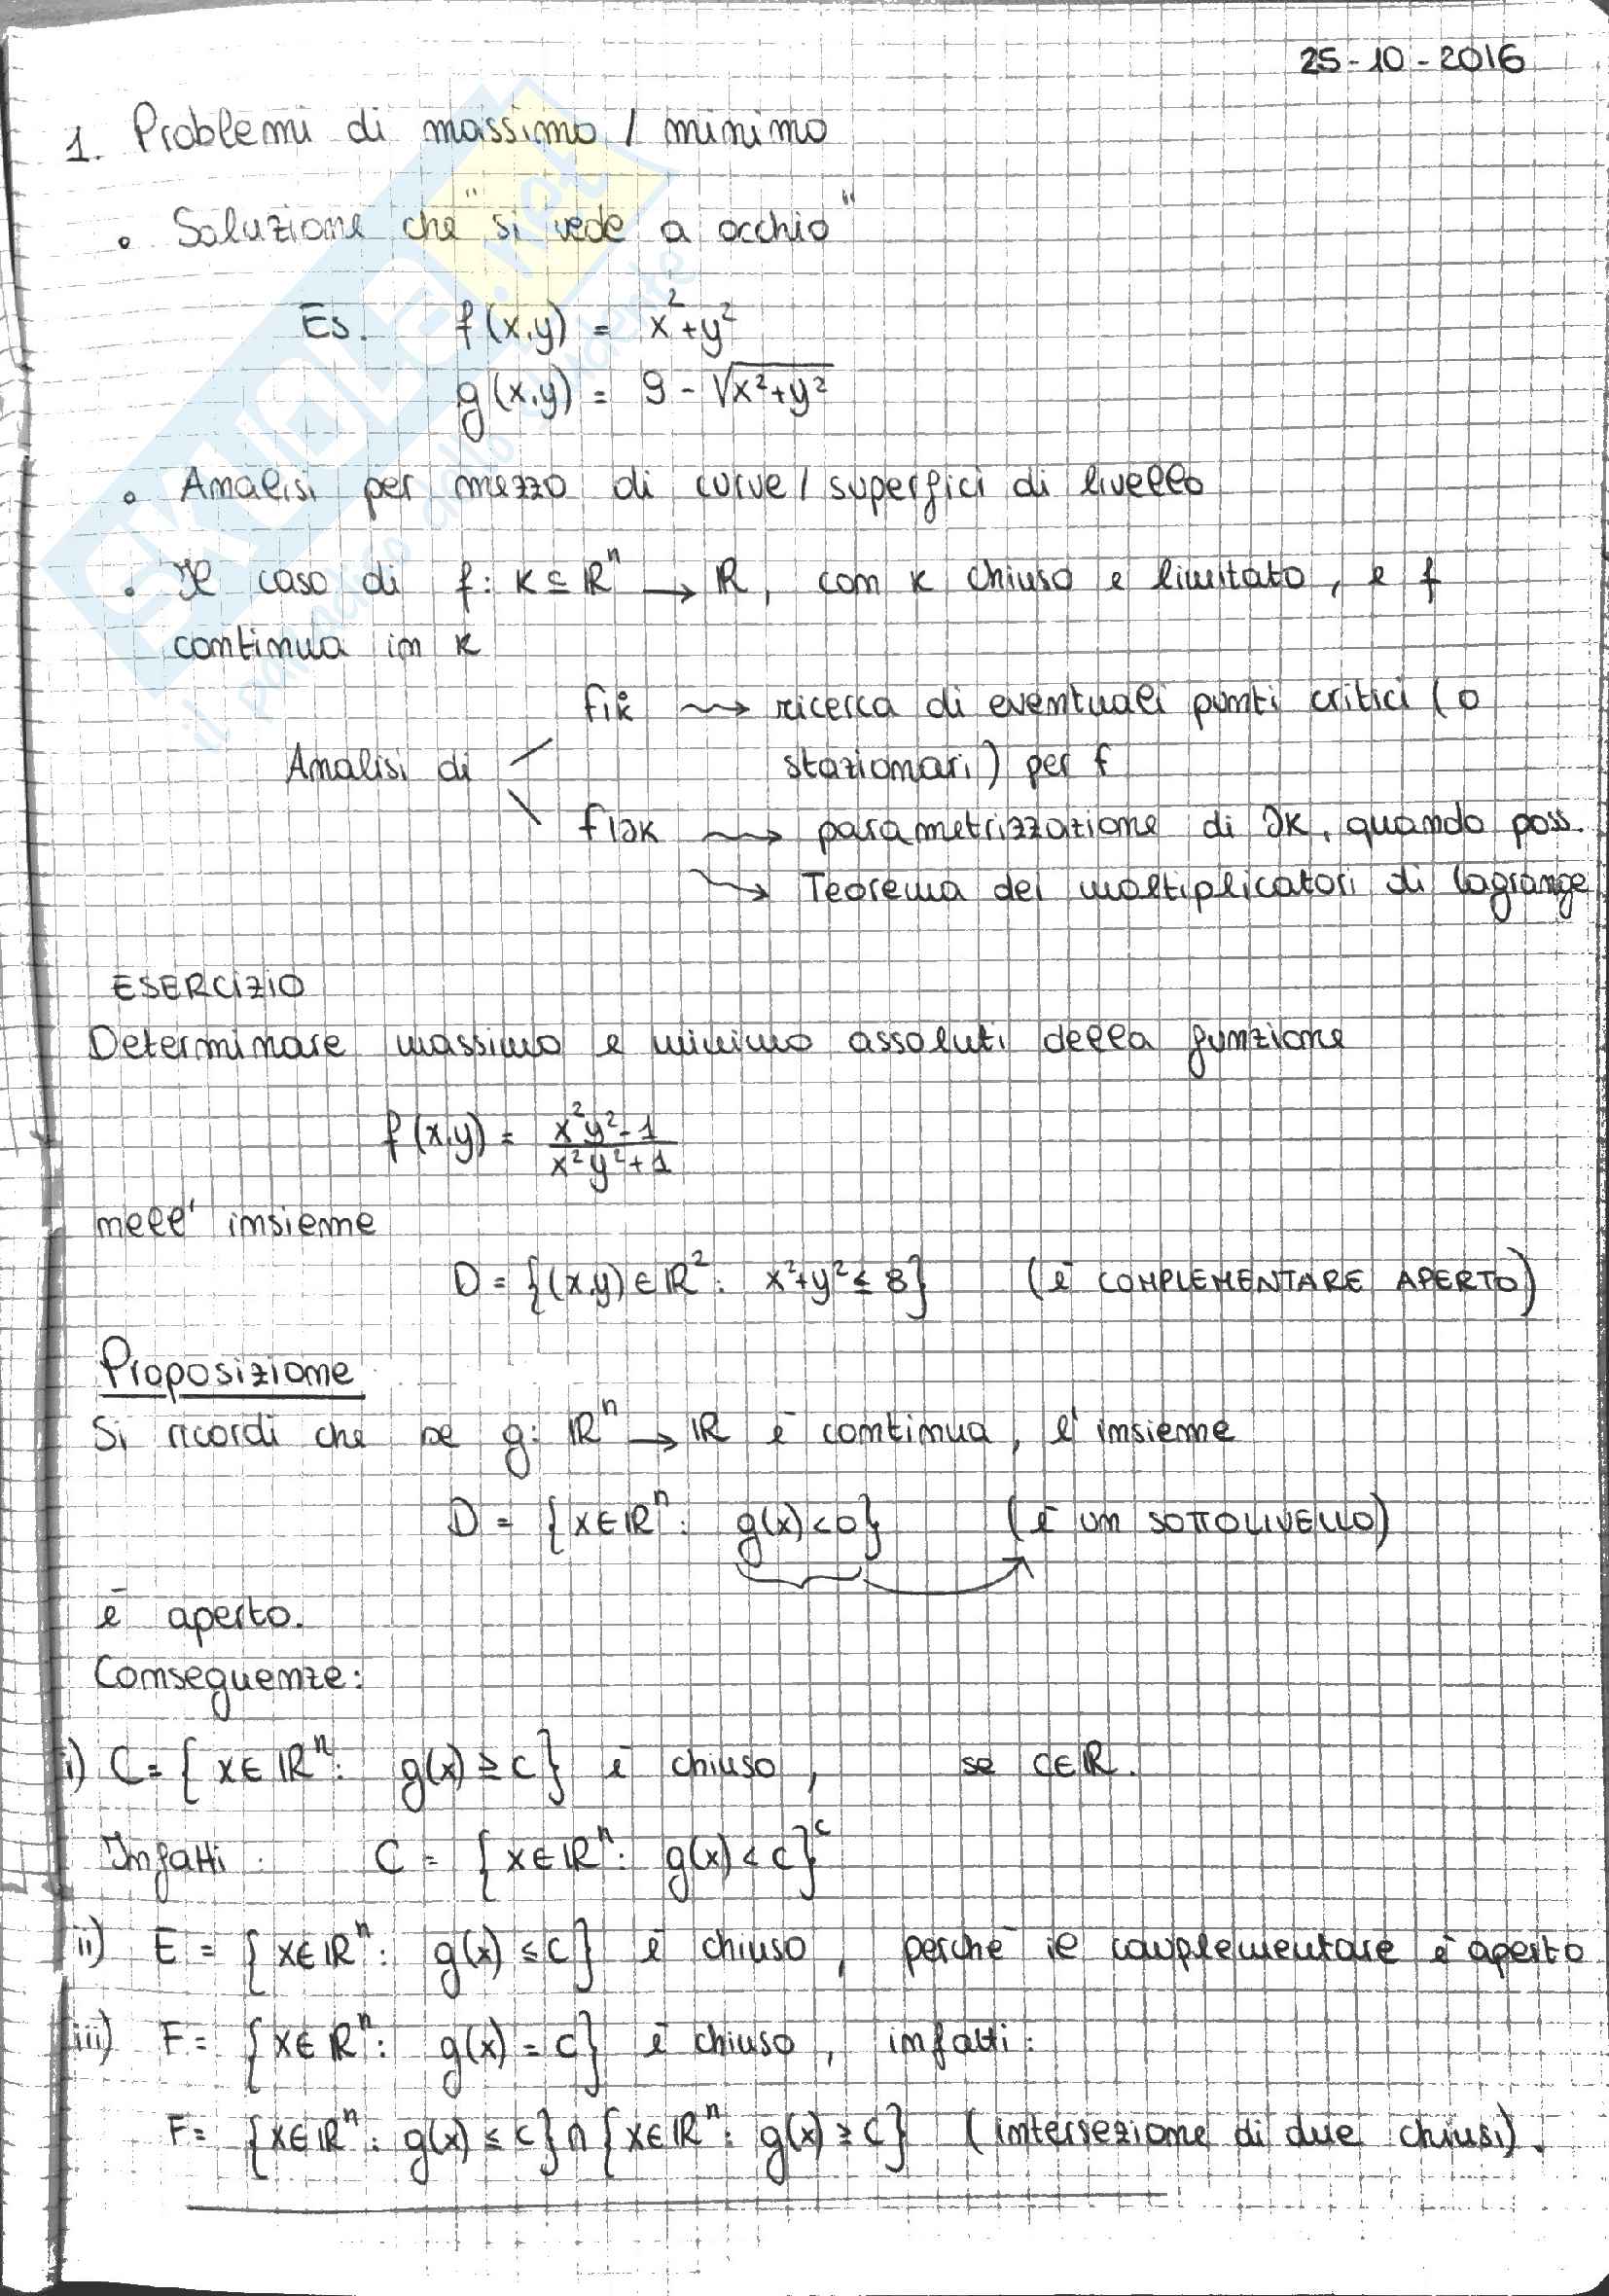 25-10-2016
1. Problemi di massimo / minimo
• Soluzione che "si vede a occhio"
Es. f(x,y) = x²+y²
g(x,y) = 9 - √x²+y²
• Analisi per mezzo di curve / superfici di livello
• Il caso di f: K ⊆ ℝⁿ → ℝ, con K chiuso e limitato, e f
continua in K
f|K̊ ⇝ ricerca di eventuali punti critici (o
Analisi di stazionari) per f
f|∂K ⇝ parametrizzazione di ∂K, quando poss.
⇝ Teorema dei moltiplicatori di Lagrange
ESERCIZIO
Determinare massimo e minimo assoluti della funzione
f(x,y) = x²y²-1 / x²y²+1
nell' insieme
D = {(x,y) ∈ ℝ²: x²+y² ≤ 8} (è COMPLEMENTARE APERTO)
Proposizione
Si ricordi che se g: ℝⁿ → ℝ è continua, l'insieme
D = {x ∈ ℝⁿ: g(x) < 0} (è UN SOTTOLIVELLO)
è aperto.
Conseguenze:
i) C = {x ∈ ℝⁿ: g(x) ≥ c} è chiuso, se c ∈ ℝ.
Infatti: C = {x ∈ ℝⁿ: g(x) < c}ᶜ
ii) E = {x ∈ ℝⁿ: g(x) ≤ c} è chiuso, perchè il complementare è aperto
iii) F = {x ∈ ℝⁿ: g(x) = c} è chiuso, infatti:
F = {x ∈ ℝⁿ: g(x) ≤ c} ∩ {x ∈ ℝⁿ: g(x) ≥ c} (intersezione di due chiusi).
SKUOLA.net
il paradiso dello studente